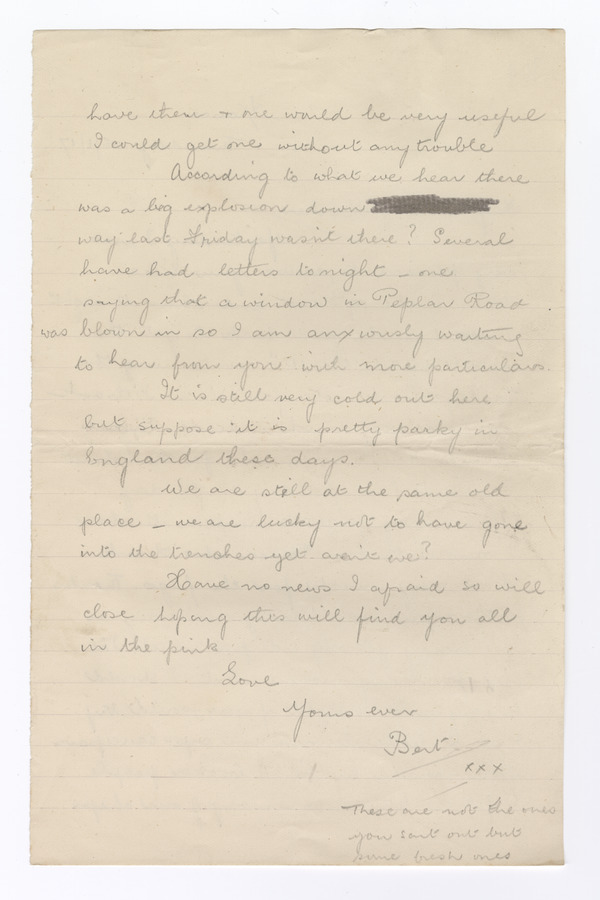 have them + one would be very useful
I could get one without any trouble
According to what we hear there
was a big explosion down
way last Friday wasn't there? Several
have had letters tonight - one
saying that a window in Peplar Road
was blown in so I am anxiously waiting
to hear from you with more particulars.
It is still very cold out here
but suppose it is pretty parky in
England these days.
We are still at the same old
place - we are lucky not to have gone
into the trenches yet aren't we?
Have no news I afraid so will
close hoping this will find you all
in the pink
Love
Yours ever
Bert
xxx
These are not the ones
you sent out but
some fresh ones